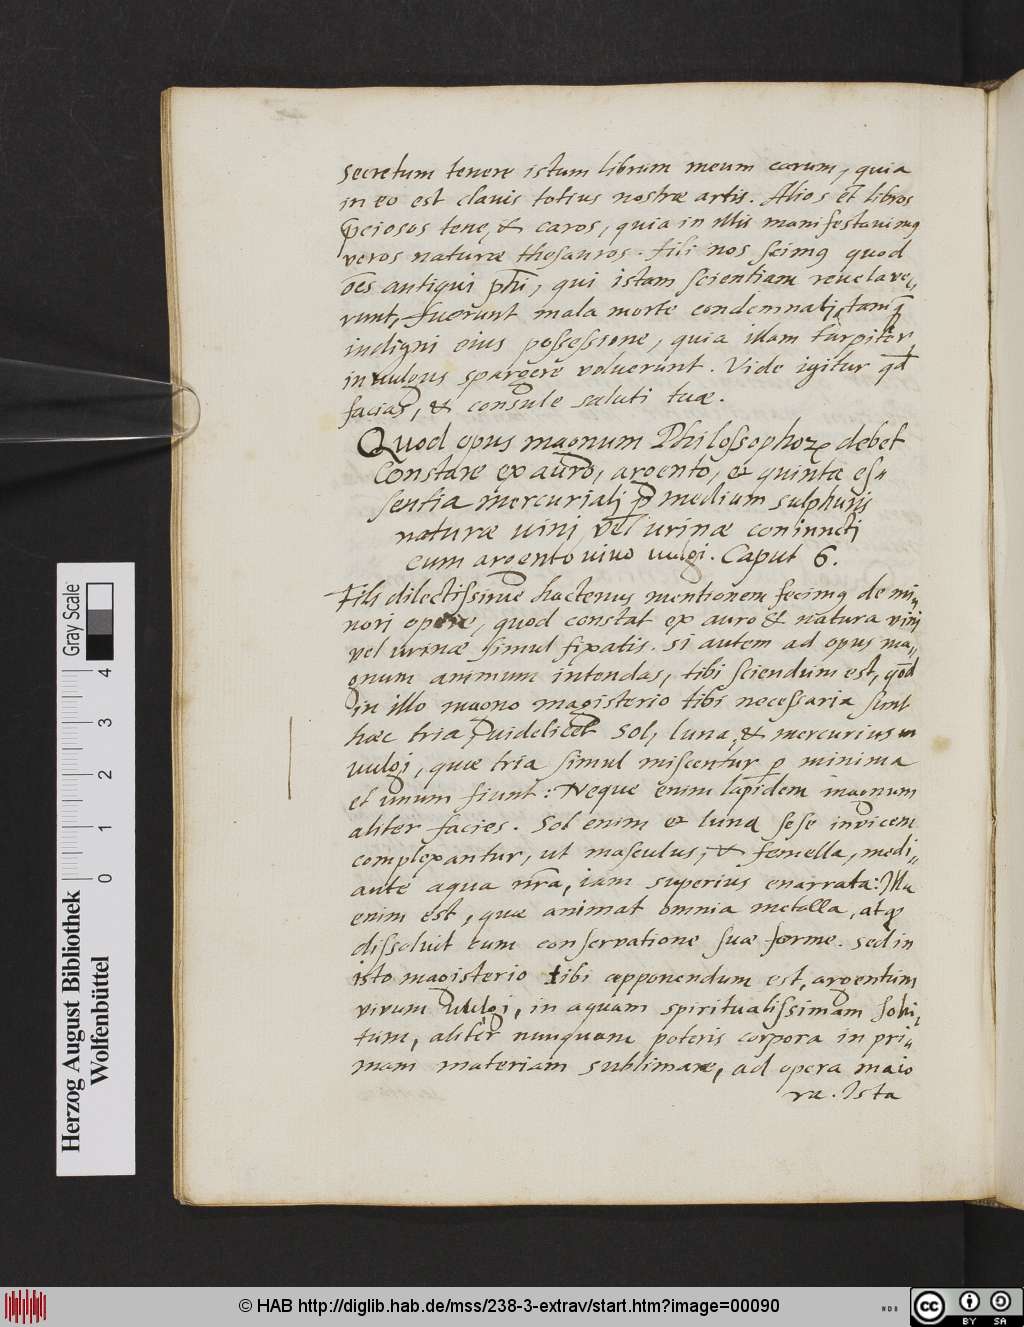 secretum tenere istum librum meum carum, quia
in eo est clauis totius nostræ artis. Alios et libros
p̄ciosos tene, & caros, quia in illis manifestauimꝰ
veros naturæ thesauros. Fili nos scimꝰ quod
oēs antiqui phi̅, qui istam scientiam reuelaue,,
runt, fuerunt mala morte condemnati, tamq̄
indigni eius possessione, quia illam turpiter
in vulgus spargere voluerunt. Vide igitur qd
facias, & consule saluti tuæ.
Quod opus magnum Philosophoꝝ debet
Constare ex auro, argento, & quinta es,,
sentia mercuriali ꝑ medium sulphuris
naturæ uini, vel urinæ coniuncti
cum argento viuo vulgi. Caput 6.
Fili dilectissime hactenus mentionem fecimꝰ de mi,,
nori opere, quod constat ex auro & natura vini
vel urinæ simul fixatis. Si autem ad opus ma,,
gnum animum intendas, tibi sciendum est, qod
in illo magno magisterio tibi necessaria sunt
hæc tria, videlicet Sol, luna, & mercurius
vulgi, quæ tria simul miscentur ꝑ minima
et unum fiunt: Neque enim lapidem magnum
aliter facies. Sol enim et luna sese invicem
complexantur, ut masculus, & femella, medi,,
ante aqua nr̄a, iam superius enarrata: Illa
enim est, quæ animat omnia metalla, atqꝫ
dissoluit cum conservatione suæ forme. Sed in
isto magisterio tibi apponendum est, argentum
vivum vulgi, in aquam spiritualissimam solu,,
tum, aliter nunquam poteris corpora in pri,,
mam materiam sublimare, ad opera maio
ra. Ista
Herzog August Bibliothek
Wolfenbüttel
0 1 2 3 4
Gray Scale
© HAB http://diglib.hab.de/mss/238-3-extrav/start.htm?image=00090
cc BY SA